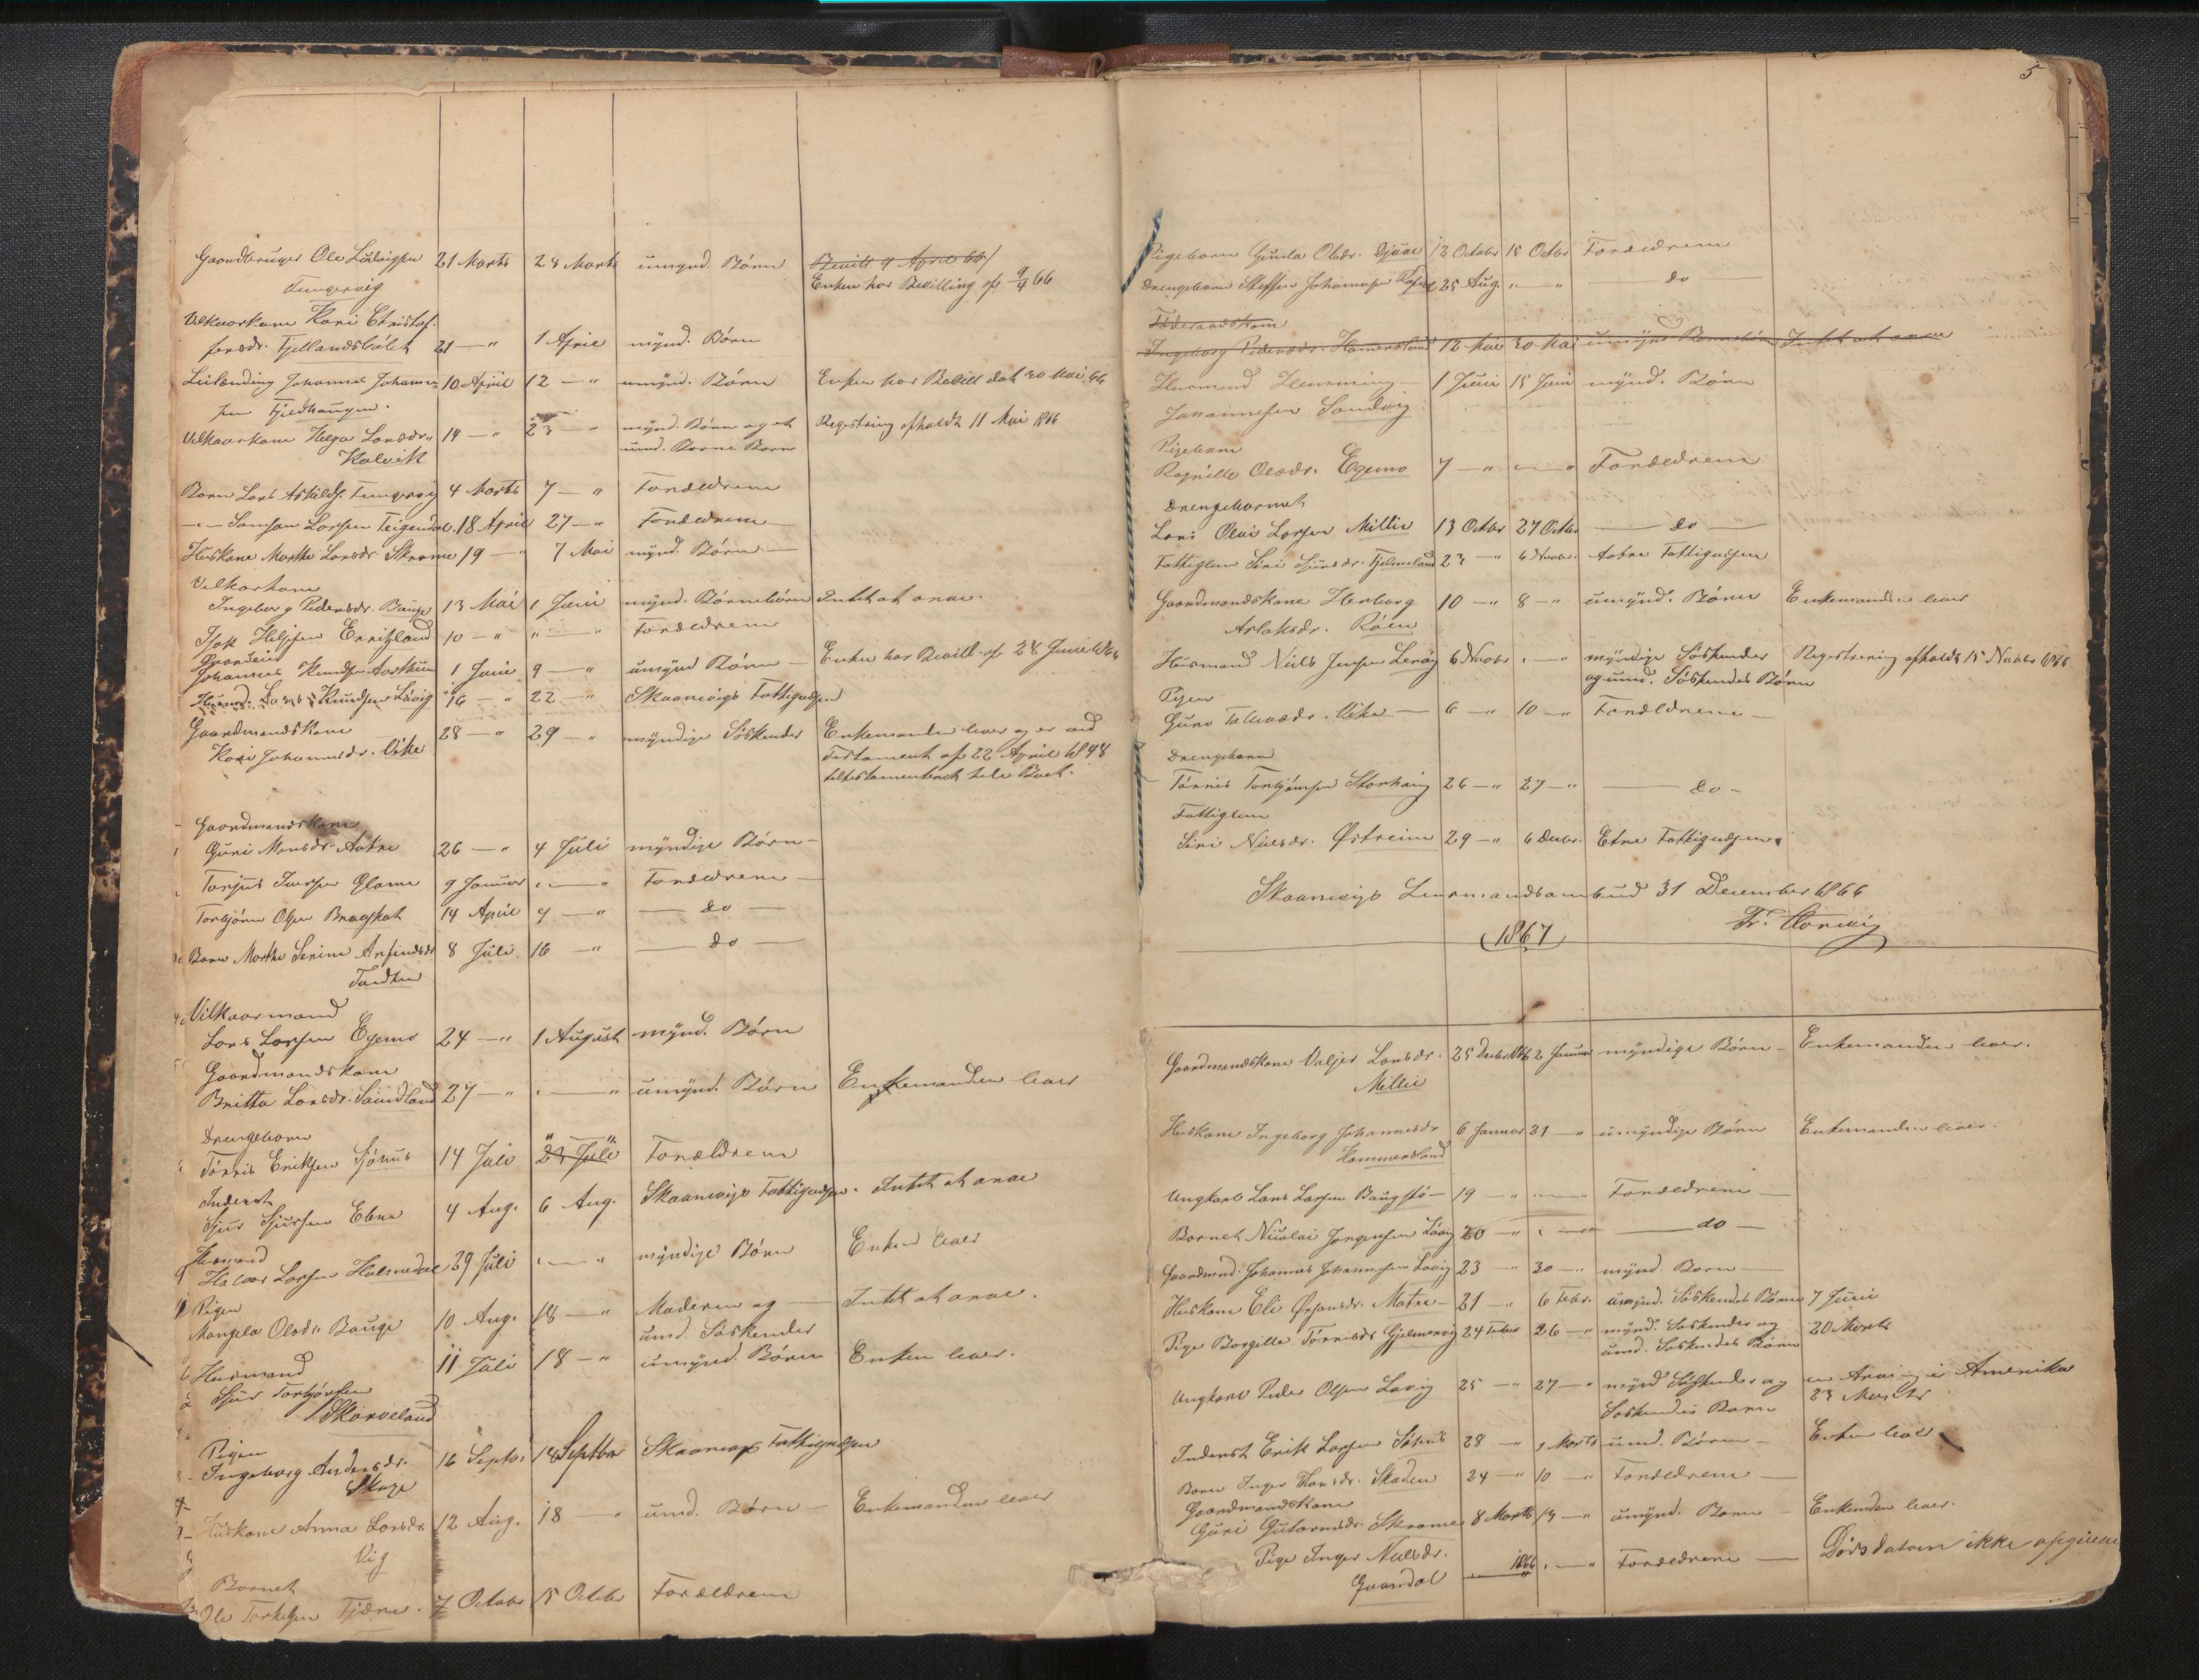 Gaardbruger Ole Ludvigsen 21 Marts 28 Marts umynd. Børn Bevill 9 April 66/
Tungesvig Enken har Bevilling af 9/4 66
Velkaarkone Kari Christof-
fersdr. Fjellandsbølet 21 — " 1 April mynd. Børn
Leilending Johannes Johannes- 10 April 12 — " umynd. Børn Enken har Bevill dat 30 Mai 66
sen Fjeldhaugen.
Vilkaarkone Helga Larsdr. 14 — " 23 — " mynd. Børn og et Registring afholdt 11 Mai 1866
Kalvik umd. Barne Barn
Barn Lars Askilds. Tungesvig 4 Marts 7 — " Forældrene
— " — Samson Larsen Teigendal. 18 April 27 — " Forældrene —
Huskone Marthe Larsdr. Skromme 19 — " 7 Mai mynd. Børn —
Velkarkone
Ingeborg Pedersdr. Bauge 13 Mai 1 Juni mynd. Børnebørn Intet at arve.
Isak Helgesen Erritsland 10 — " " — " Forældrene
Gaardeier
Johannes Knudsen Aarthun 1 Juni 9 — " umynd Børn — Enken har Bevill af 28 Juni 1866
Husmd. Lars Knudsen Løvig 16 — " 22 — " Skaanevigs Fattigvæsen
Gaardmandskone 28 — " 29 — " myndige Søskender Enkemanden lever og er ved
Kari Johannesdr. Vike Testament af 22 April 1848
tiltestamenteret hele Boet.
Gaardmandskone
Guri Monsdr. Aatre 26 — " 4 Juli myndige Børn —
Torjus Iversen Glame 9 Januar " — " Forældrene —
Torbjørn Olsen Bragstat 14 April 9 — " — do —
Barn Marthe Serine Arfindsdr 8 Juli 16 — " — do —
Tardten
Vilkaarmand
Lars Larsen Egemo 24 — " 1 August mynd. Børn
Gaardmandskone
Britta Larsdr. Sandland 27 — " " — " umynd. Børn Enkemanden lever
Drengebarn
Tørris Eriksen Sjøhus 14 Juli 23 Juli Forældrene
Inderst
Sjur Sjursen Ebne 4 Aug. 6 Aug. Skaanevigs Fattigvæsen. Intet at arve
Husmand
Halvor Larsen Halsnedal 29 Juli " — " myndige Børn Enken lever
Pigen
Mangela Olsdr. Bauge 10 Aug. 18 — " Moderen og — Intet at arve.
umd. Søskender
Husmand 11 Juli 18 — " umynd. Børn Enken lever.
Sjur Torbjørnsen
Skarveland
Pigen
Ingeborg Andersdr. 16 Septbr 18 Septbr Skaanevigs Fattigvæsen
Skage
Huskone Anna Larsdr. 12 Aug. 18 — " umd. Børn — Enkemanden lever
Vig
Barnet
Ole Torkelsen Fjære. 7 Octobr 15 Octbr Forældrene
5
Pigebarn Gunla Olsdr. Djuve 13 Octobr 15 Octbr Forældrene
Drengebarn Steffen Johannesen 25 Aug. " — " — do
Føderaadskone
Ingeborg Pedersdr. Hammersland 12 Mai 30 Mai umynd Barnebørn Intet at arve
Husmand Henning — 1 Juni 15 Juni mynd. Børn
Johannesen Sandvig
Pigebarn
Ragnilde Olsdr. Egemo 7 — " " — " Forældrene
Drengebarnet
Lars Olai Larsen Millie 13 Octbr 27 Octbr — do —
Fattiglem Siri Sjursdr. Fjelmeland 23 — " 6 Novbr. Aatre Fattigvæsen
Gaardmandskone Herborg 10 — " 8 — " umynd. Børn Enkemanden lever
Aslaksdr. Røen
Husmand Niels Jensen Lervig 6 Novbr " — " myndige Søskender Registrering afholdt 15 Novbr 1866
og umd. Søskendes Børn
Pigen
Guro Tolvesdr. Vike — 6 — " 10 — " Forældrene —
Drengebarn
Tørris Torbjørnsen Storhaug 26 — " 27 — " — do —
Fattiglem
Siri Nielsdr. Østreim 29 — " 6 Decbr. Etne Fattigvæsen.
Skaanevigs Lensmandsombud 31 December 1866
1867
Gaardmandskone Valjer Larsdr. 25 Decbr 1866 2 Januar myndige Børn — Enkemanden lever.
Millie
Huskone Ingeborg Johannesdr 6 Januar 21 — " umyndige Børn Enkemanden lever.
Hammersland
Ungkarl Lars Larsen Baugstø — 19 — " " — " Forældrene —
Barnet Nicolai Jørgensen Løvig 20 — " " — " — do —
Gaardmd. Johannes Johannesen Løvig 23 — " 30 — " mynd. Børn —
Huskone Eli Ørjansdr. Matre — 21 — " 6 Febr. umynd. Søskendes Børn 7 Juni
Pige Borgille Tørresdr. Gjelmervig 24 Febr 26 — " mynd. Søskender og 20 Marts
umd. Søskendes Børn
Ungkarl Peder Olsen Løvig 25 — " 27 — " mynd Søskender og en Arving i Amerika
Søskendes Børn 23 Marts
Inderst Erik Larsen Sjøhus 28 — " 1 Marts umd. Børn — Enken lever
Barn Inger Hansdr. Skaden 24 — " 10 — " Forældrene —
Gaardmandskone
Guri Gutormsdr. Skromme 8 Marts 19 — " umynd. Børn — Enkemden lever.
Pige Inger Nielsdr. 1866 " — " Forældrene — Dødsdatoen ikke opgiven
Guardal